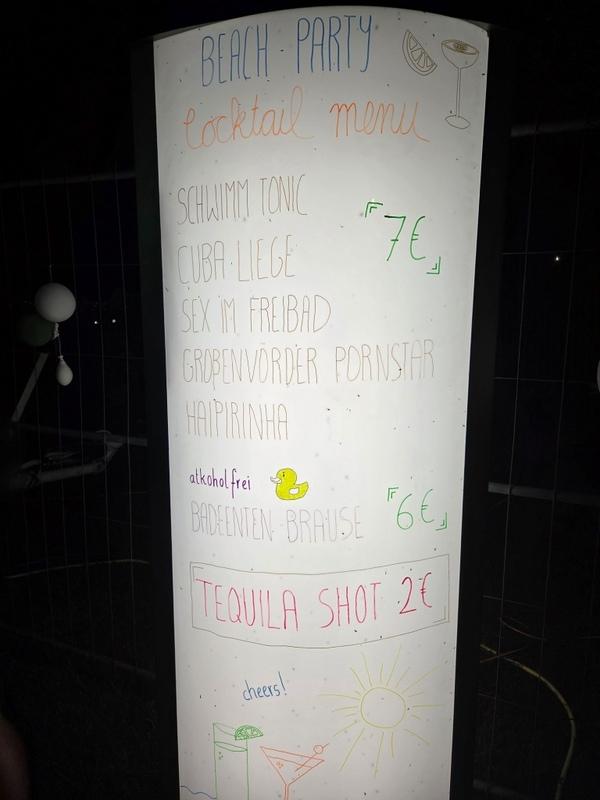 BEACH PARTY
Cocktail menu
SCHWIMM TONIC
7€
CUBA LIEGE
SEX IM FREIBAD
GROßENVÖRDER PORNSTAR
HAIPIRINHA
alkoholfrei
BADEENTEN BRAUSE
6€
TEQUILA SHOT 2€
cheers!